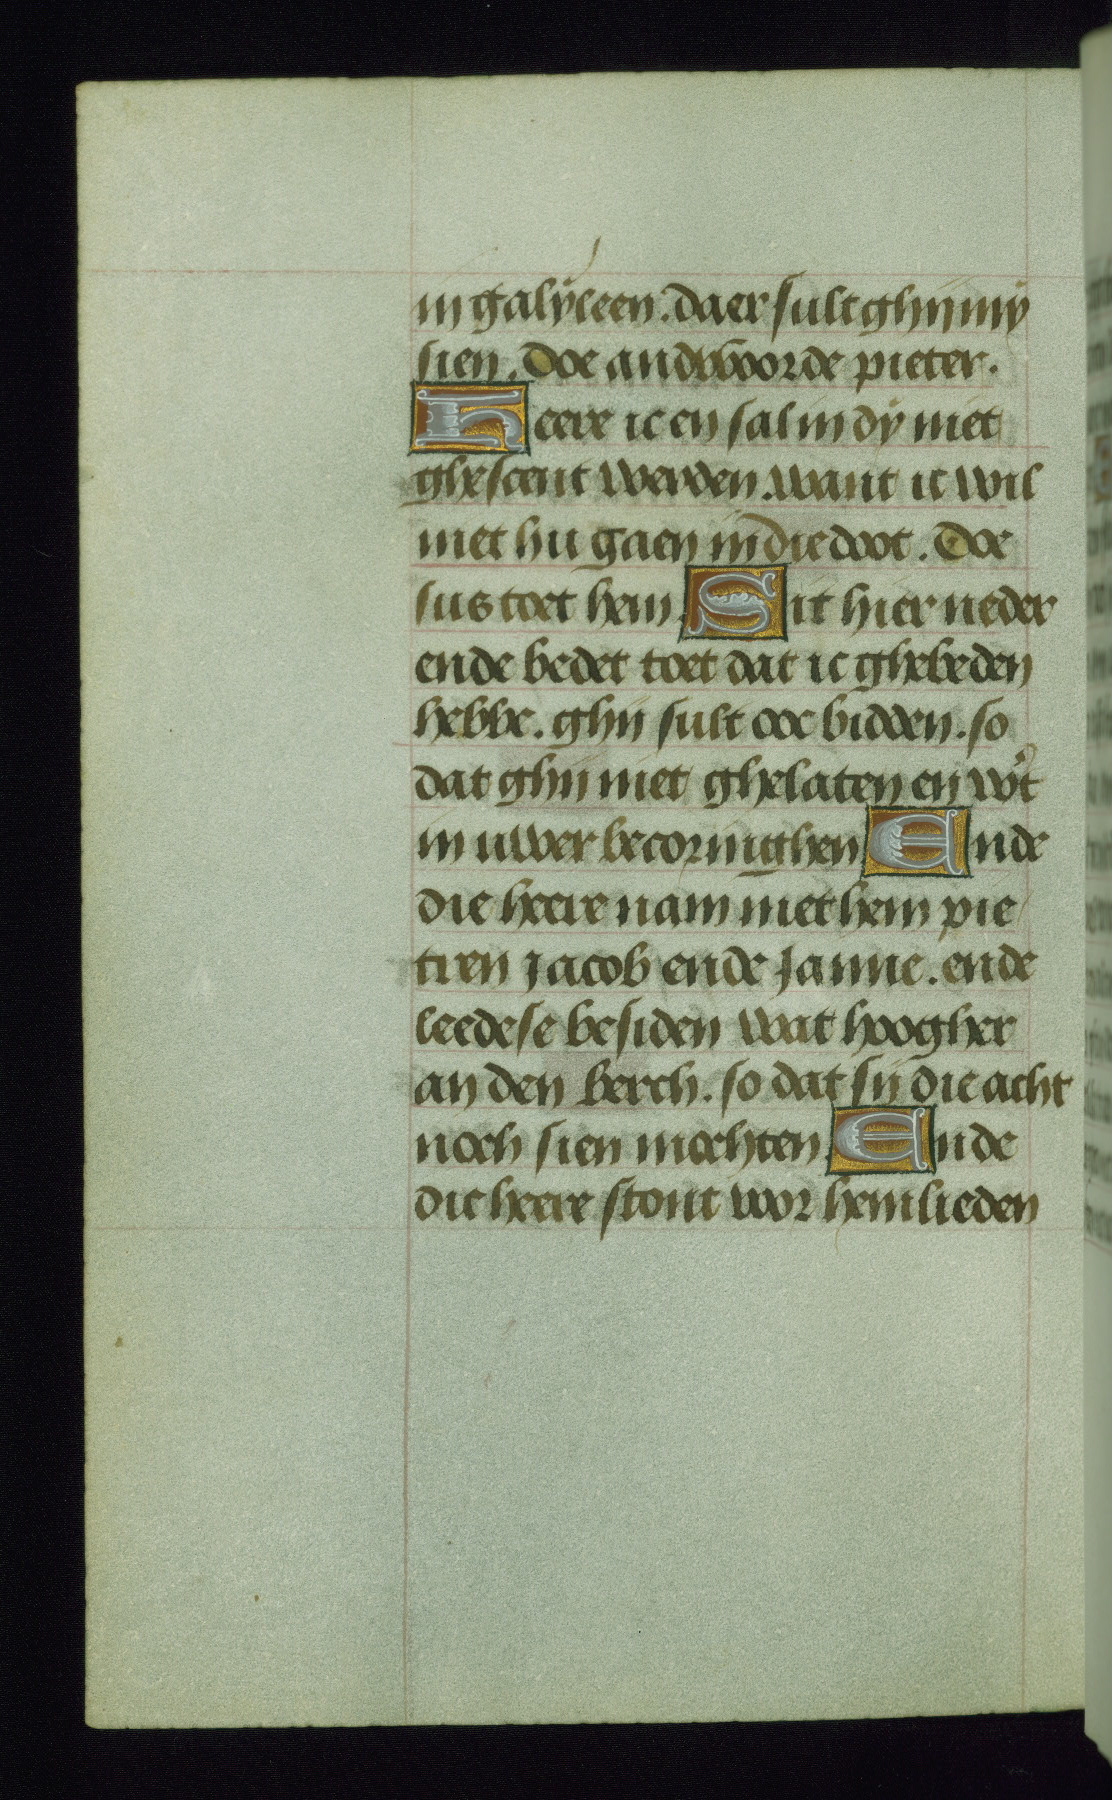 in galyleen. daer sult ghij my
sien. Doe andwoorde pieter.
Heere ic en sal in dy niet
ghescent werden. want ic wil
met hu gaen in die doot. Doe
sus toet hem. Sit hier neder
ende bedet toet dat ic ghebeden
hebbe. ghij sult ooc bidden. so
dat ghij niet ghelaten en wort
in uwer becoringhen Ende
die heere nam met hem pie
tren Jacob ende Janne. ende
leedese besiden wat hoogher
an den berch. so dat sij die acht
noch sien mochten. Ende
die heere stont voor hemlieden